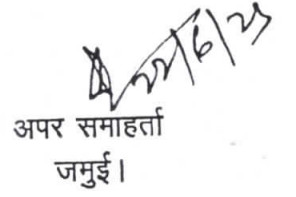 22/6/25
अपर समाहर्ता
जमुई।